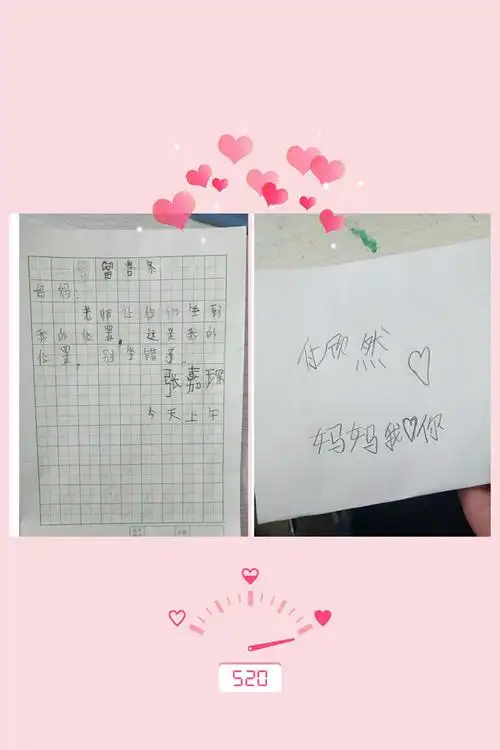 留言条
妈妈:
老师让你们坐到
我的位置,这是我的
位置,别坐错了。
张嘉琛
今天上午
付欣然♡
妈妈我♡你
520